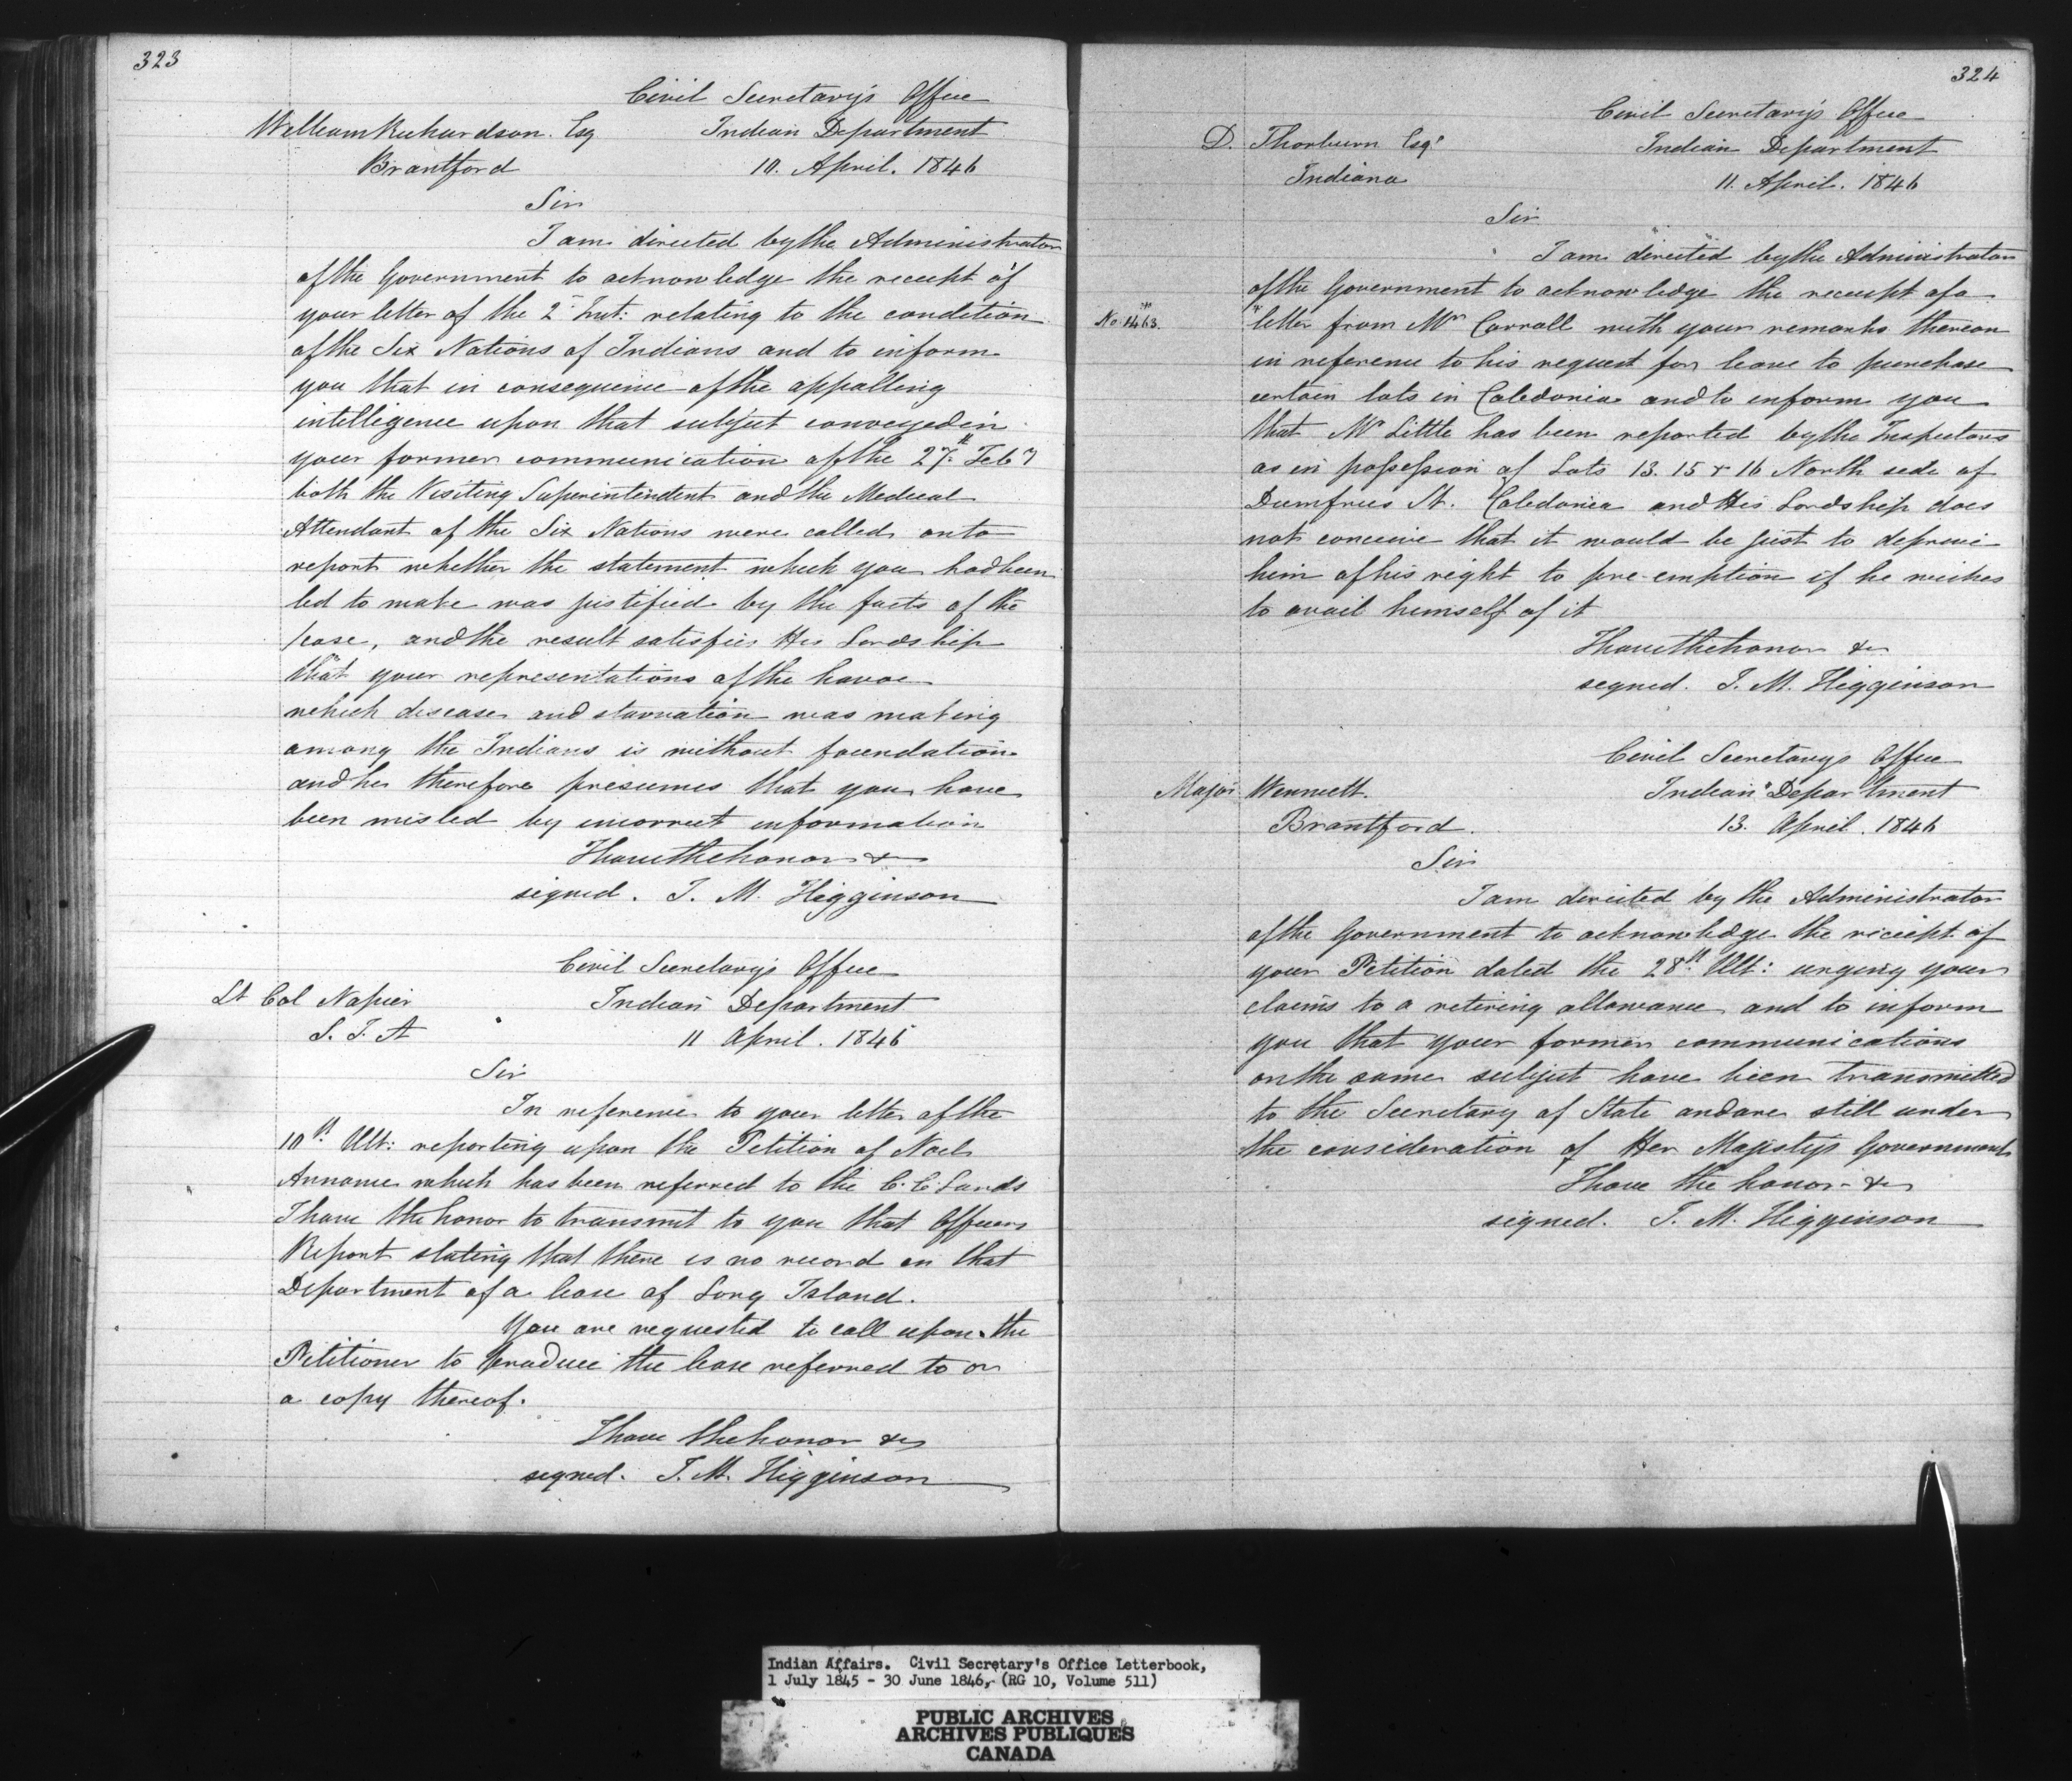 323
Civil Secretary's Office
William Richardson. Esq Indian Department
Brantford 10. April. 1846
Sir
I am directed by the Administrator
of the Government to acknowledge the receipt of
your letter of the 2d Inst: relating to the condition
of the Six Nations of Indians and to inform
you that in consequence of the appalling
intelligence upon that subject conveyed in
your former communication of the 27th Feby
both the Visiting Superintendent and the Medical
Attendant of the Six Nations were called on to
report whether the statement which you had been
led to make was justified by the facts of the
case, and the result satisfies His Lordship
that your representations of the havoc
which disease and starvation was making
among the Indians is without foundation
and he therefore presumes that you have
been misled by incorrect information
I have the honor &c
signed. J. M. Higginson
Civil Secretary's Office
Lt Col Napier Indian Department
S. I. A 11 April. 1846
Sir
In reference to your letter of the
10th Ult: reporting upon the Petition of Noel
Annance which has been referred to the C. C. Lands
I have the honor to transmit to you that Officers
Report stating that there is no record in that
Department of a lease of Long Island.
You are requested to call upon the
Petitioner to produce the lease referred to or
a copy thereof.
I have the honor &c
signed. J. M. Higginson
324
Civil Secretary's Office
D. Thorburn Esqr Indian Department
Indiana 11. April. 1846
Sir
I am directed by the Administrator
of the Government to acknowledge the receipt of a
No. 1463. letter from Mr Carroll with your remarks thereon
in reference to his request for leave to purchase
certain lots in Caledonia and to inform you
that Mr Little has been reported by the Inspectors
as in possession of Lots 13. 15 & 16 North side of
Dumfries St. Caledonia and His Lordship does
not conceive that it would be just to deprive
him of his right to pre-emption if he wishes
to avail himself of it
I have the honor &c
signed. J. M. Higginson
Civil Secretarys Office
Major Winniett. Indian Department
Brantford. 13. April. 1846
Sir
I am directed by the Administrator
of the Government to acknowledge the receipt of
your Petition dated the 28th Ult: urging your
claims to a retiring allowance and to inform
you that your former communications
on the same subject have been transmitted
to the Secretary of State and are still under
the consideration of Her Majestys Government
I have the honor &c
signed. J. M. Higginson
Indian Affairs. Civil Secretary's Office Letterbook,
1 July 1845 - 30 June 1846, (RG 10, Volume 511)
PUBLIC ARCHIVES
ARCHIVES PUBLIQUES
CANADA